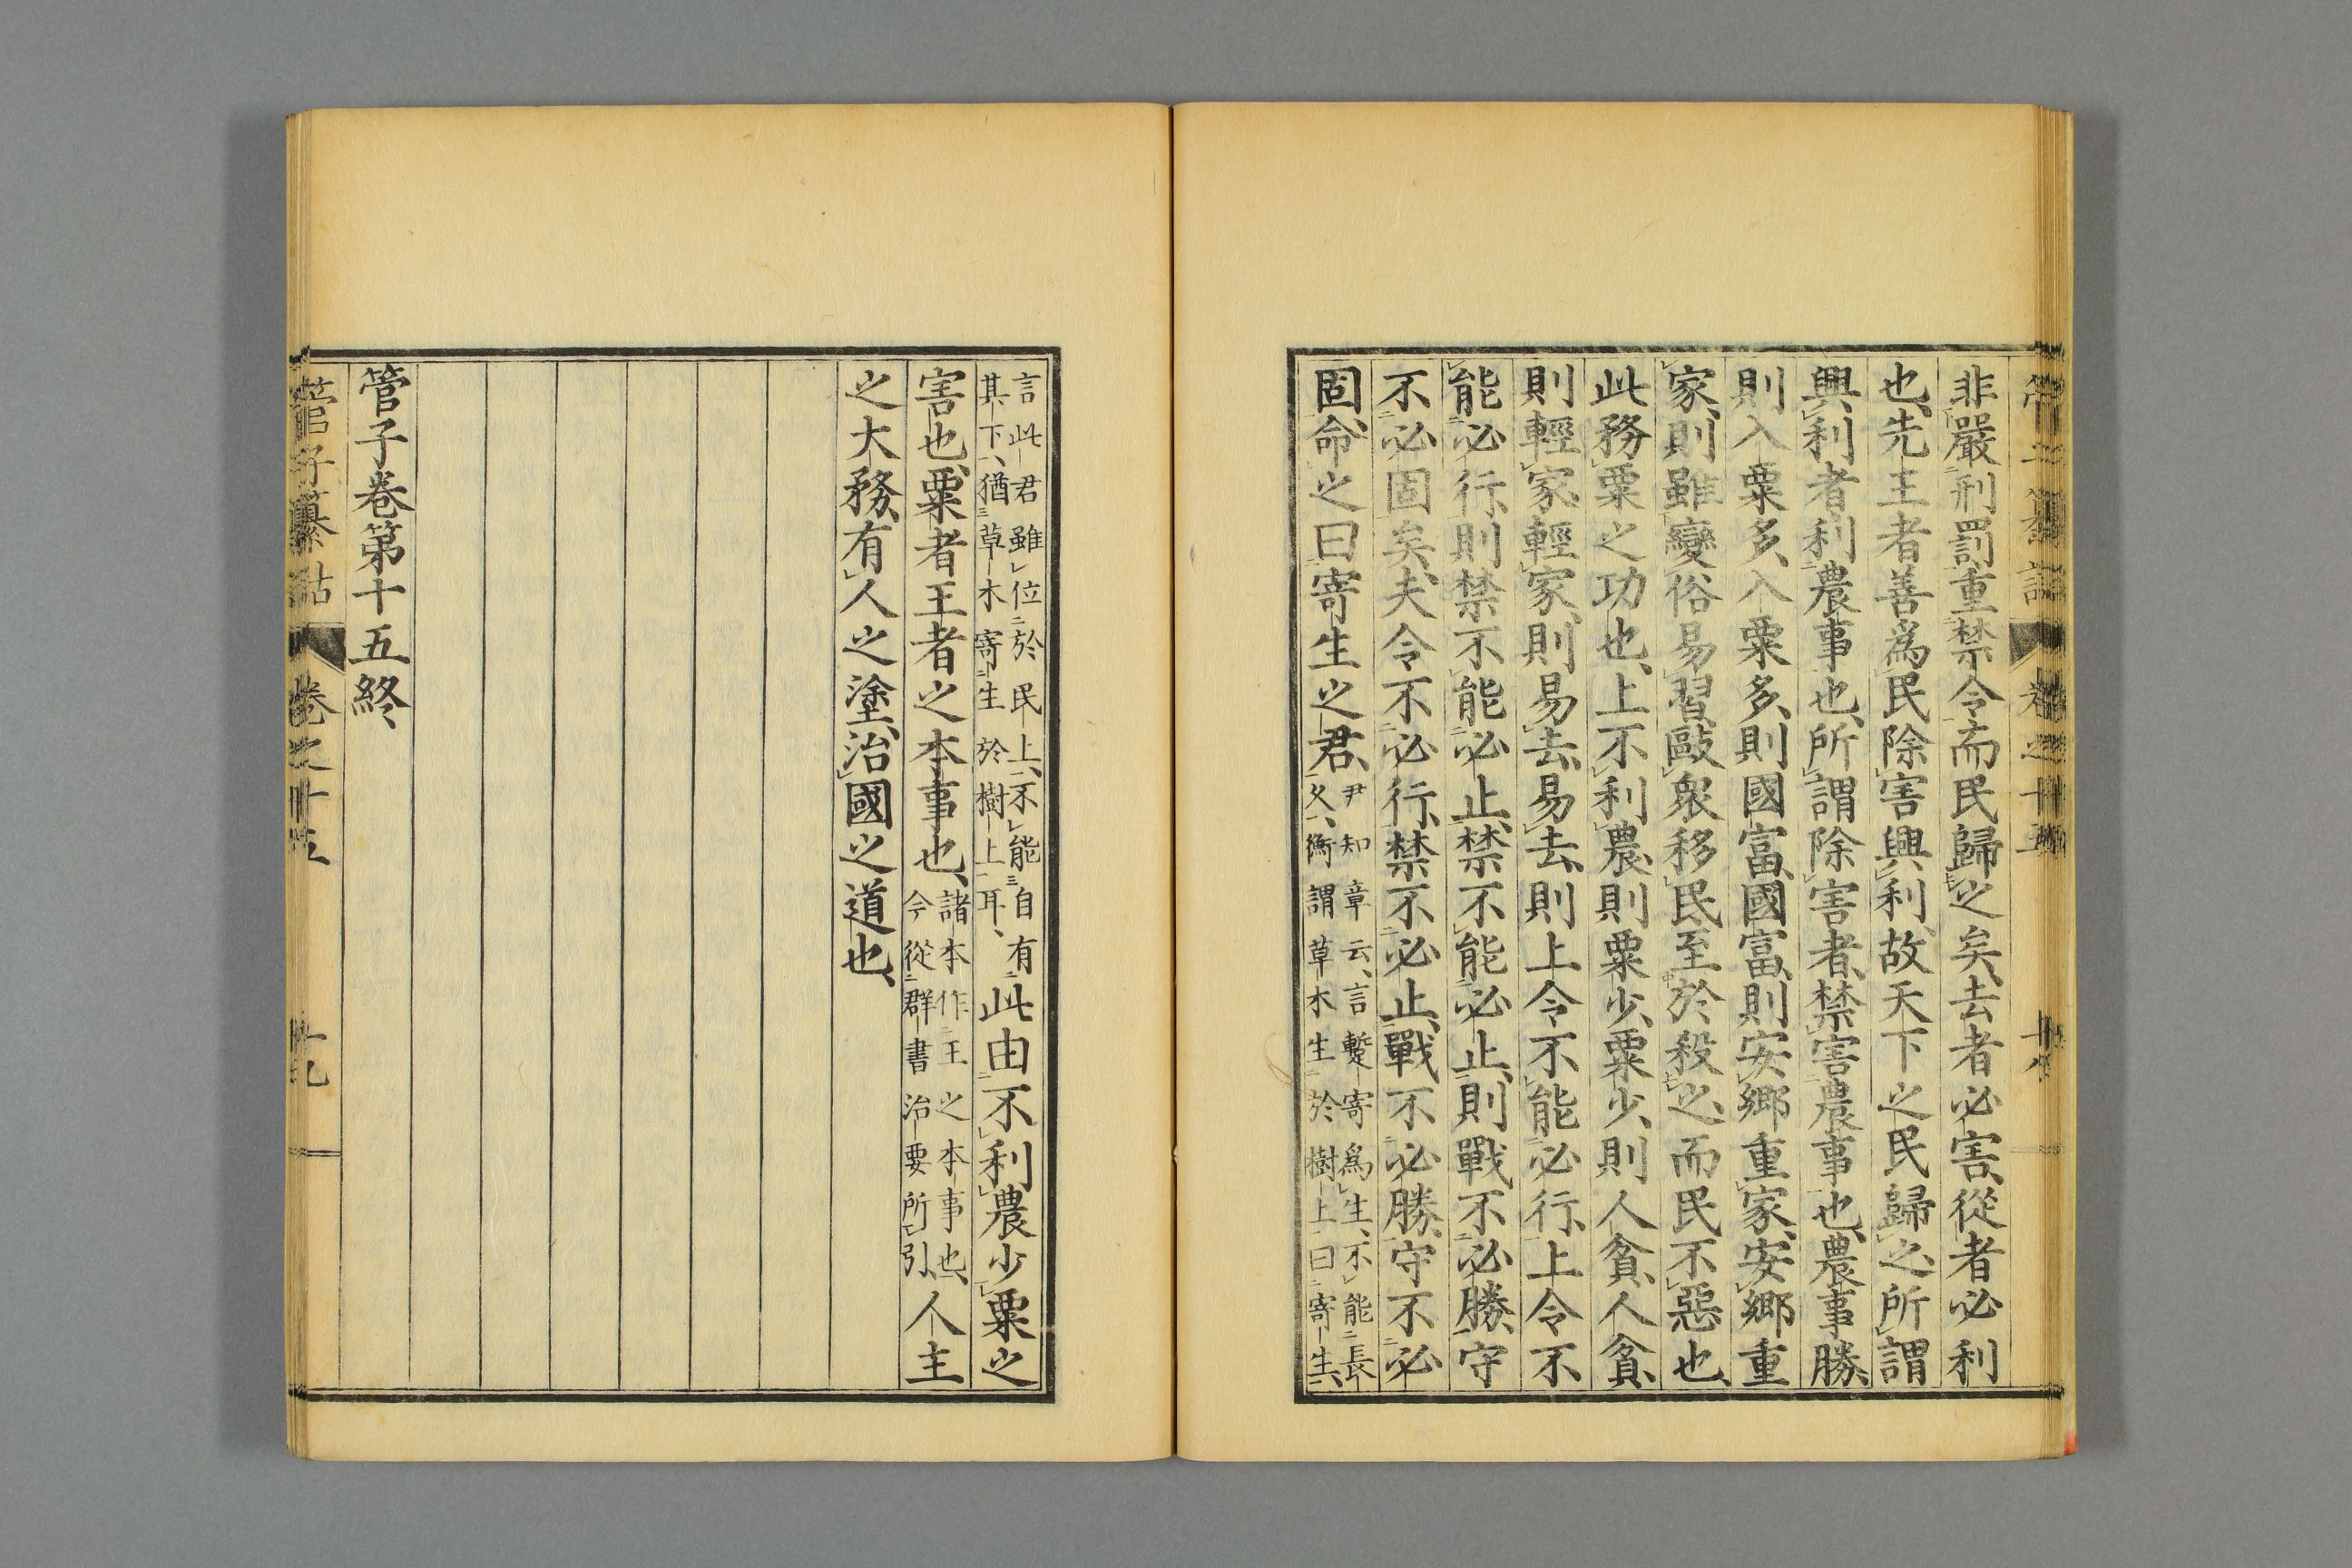 非嚴刑罰重禁令而民歸之矣去者必害從者必利
也先王者善爲民除害興利故天下之民歸之所謂
興利者利農事也所謂除害者禁害農事也農事勝
則入粟多入粟多則國富國富則安鄉重家安鄉重
家則雖變俗易習敺衆移民至於殺之而民不惡也
此務粟之功也上不利農則粟少粟少則人貧人貧
則輕家輕家則易去易去則上令不能必行上令不
能必行則禁不能必止禁不能必止則戰不必勝守
不必固矣夫令不必行禁不必止戰不必勝守不必
固命之曰寄生之君尹知章云言蹔寄爲生不能長
久衡謂草木生於樹上曰寄生
言此君雖位於民上不能自有
其下猶草木寄生於樹上耳此由不利農少粟之
害也粟者王者之本事也諸本作王之本事也
今從群書治要所引人主
之大務有人之塗治國之道也
管子卷第十五終
管子纂詁 卷之十五